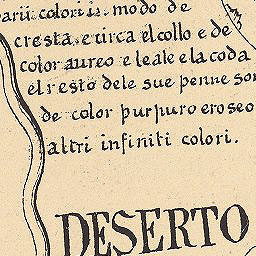 varii colori in modo de
cresta e circa el collo e de
color aureo e le ale e la coda
el resto dele sue penne son
de color purpuro eroseo
altri infiniti colori.
DESERTO